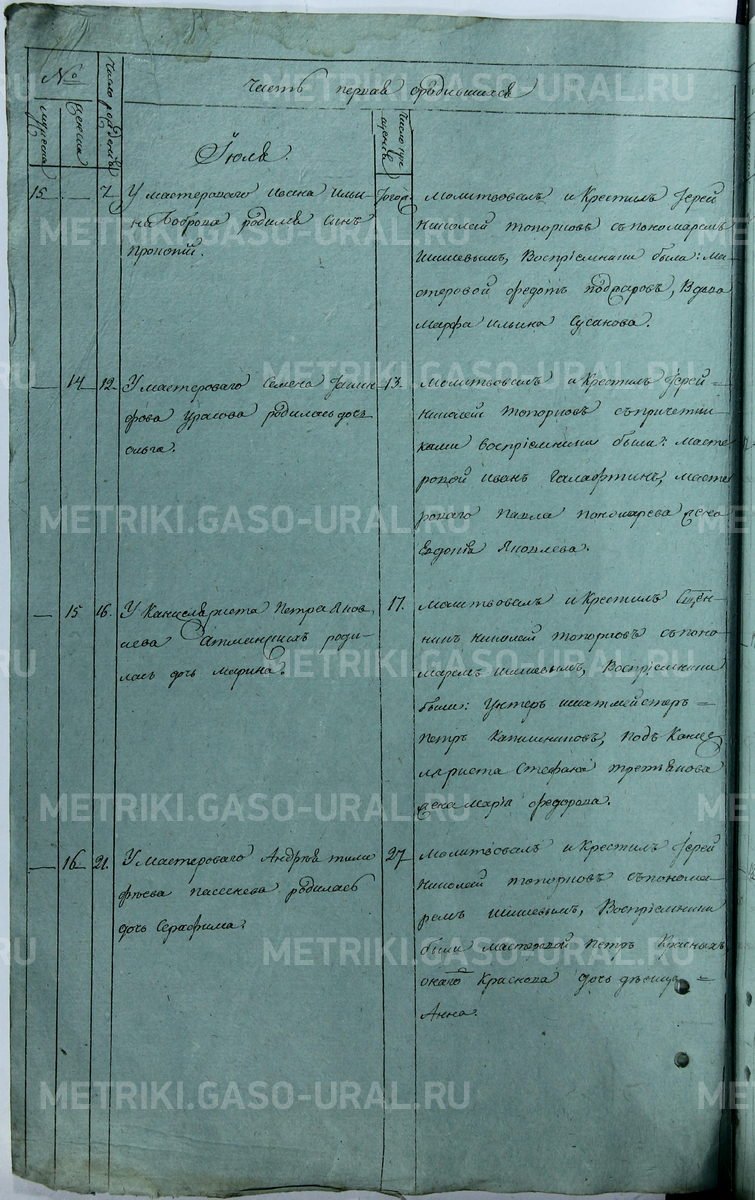 №
мужеска
женска
число рожденiя
Часть первая о родившихся
Iюля.
число кре
щенiя
15. 7.
У мастероваго Ивана Ильи
на Боброва родился сынъ
Прокопiй.
Молитвовалъ и Крестилъ Iерей
Николай Топорковъ съ пономаремъ
Шишевымъ, Воспрiемники были: Ма
стеровой Федотъ, Вдова
Марфа Ильина Сусанова.
14 12.
У мастероваго Семена
Уралова родилась дочь
Ольга.
13.
Молитвовалъ и Крестилъ Iерей =
Николай Топорковъ съ причетни
ками воспрiемники были: Масте
ровой Иванъ Галафтинъ, масте
роваго Павла Пономарева жена
Евдокiя Яковлева.
15 16.
У Канцеляриста Петра Яков
лева роди
лась дочь Марина.
17.
Молитвовалъ и Крестилъ
Николай Топорковъ съ поно
маремъ Шишевымъ, Воспрiемники
были: Унтеръ шихтмейстеръ =
Петръ, Подъ Канце
ляриста Стефана Третьякова
жена Марiа Федорова.
16 21.
У Мастероваго Андрея
родилась
дочь Серафима.
27
Молитвовалъ и Крестилъ Iерей
Николай Топорковъ съ понома
ремъ Шишевымъ, Воспрiемники
были мастеровой Петръ Красныхъ,
онаго Краснова дочь дѣвица =
Анна.
METRIKI.GASO-URAL.RU